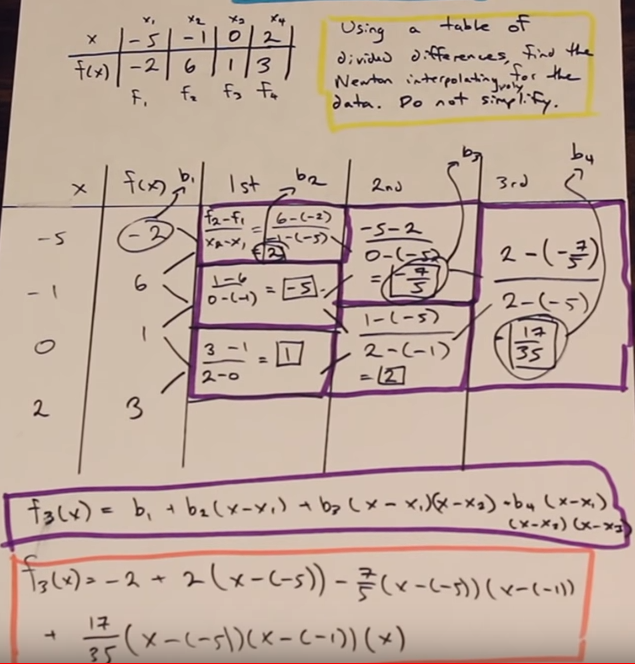 x₁ x₂ x₃ x₄
x -5 -1 0 2
f(x) -2 6 1 3
f₁ f₂ f₃ f₄
Using a table of
divided differences, find the
Newton interpolating poly for the
data. Do not simplify.
x f(x) b₁ 1st b₂ 2nd b₃ 3rd b₄
-5 -2 (f₂-f₁)/(x₂-x₁) = (6-(-2))/(-1-(-5)) = 2
-1 6 (1-6)/(0-(-1)) = -5
0 1 (3-1)/(2-0) = 1
2 3
(-5-2)/(0-(-5)) = -7/5
(1-(-5))/(2-(-1)) = 2
(2-(-7/5))/(2-(-5))
= 17/35
f₃(x) = b₁ + b₂(x-x₁) + b₃(x-x₁)(x-x₂) + b₄(x-x₁)
(x-x₂)(x-x₃)
f₃(x) = -2 + 2(x-(-5)) - 7/5(x-(-5))(x-(-1))
+ 17/35(x-(-5))(x-(-1))(x)